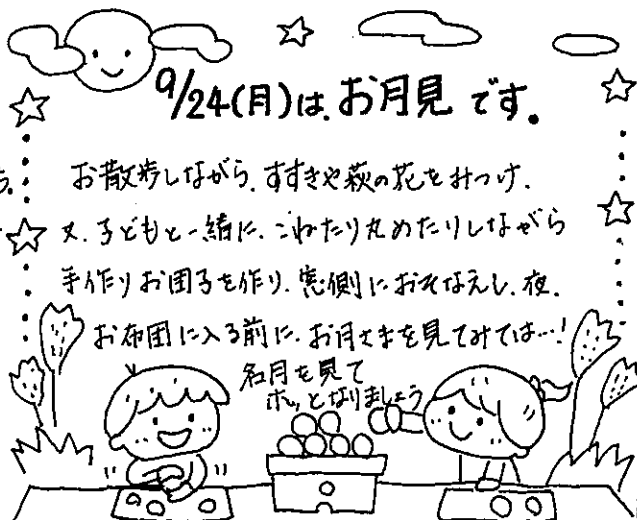 9/24(月)は、お月見です。
お散歩しながら、すすきや萩の花をみつけ、
又、子どもと一緒に、こねたり丸めたりしながら
手作りお団子を作り、窓側におそなえし、夜、
お布団に入る前に、お月さまを見てみては…!
名月を見て
ホッとなりましょう